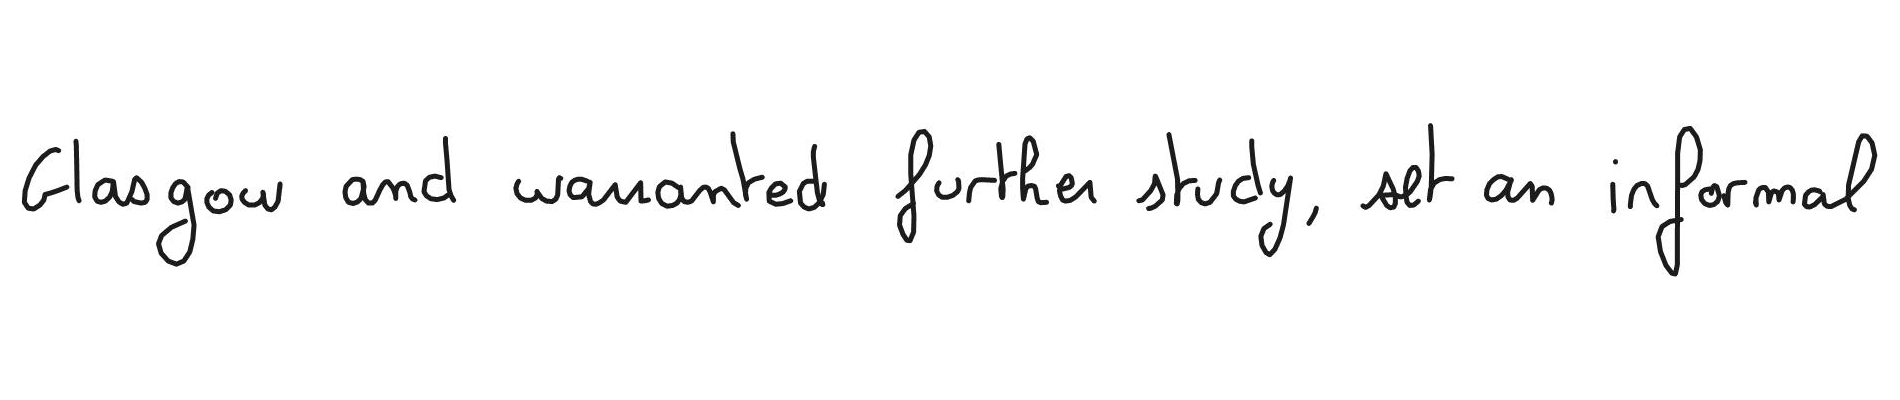 Glasgow and warranted further study, set an informal